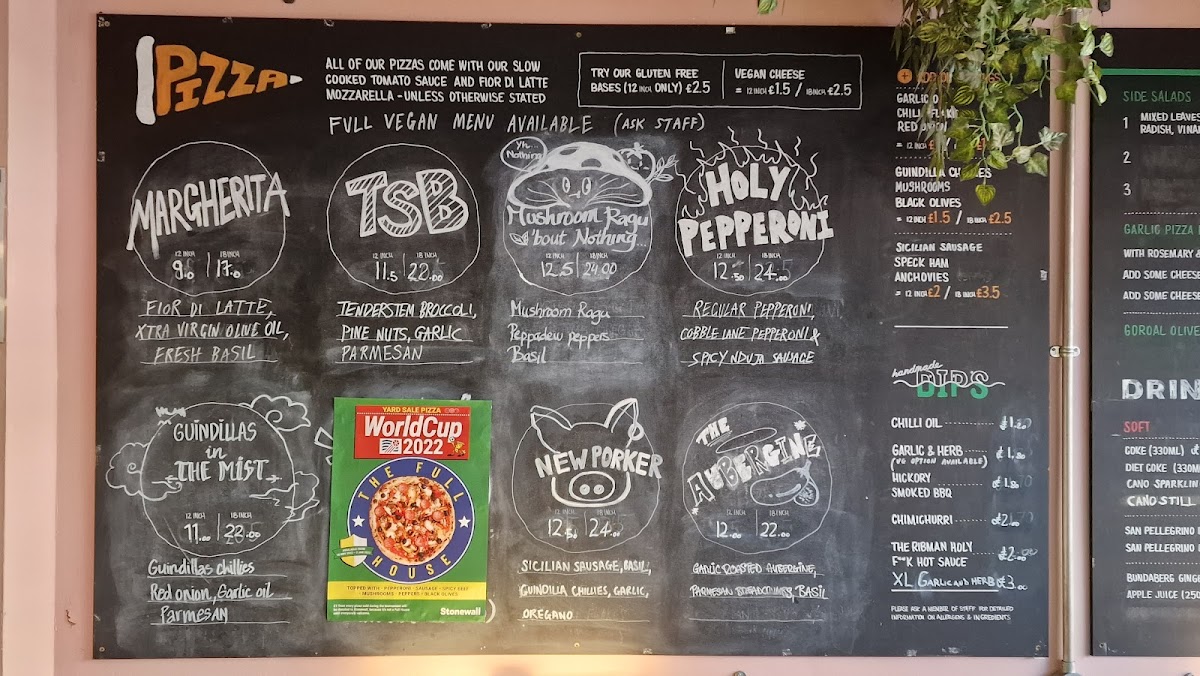 PIZZA
ALL OF OUR PIZZAS COME WITH OUR SLOW
COOKED TOMATO SAUCE AND FIOR DI LATTE
MOZZARELLA - UNLESS OTHERWISE STATED
TRY OUR GLUTEN FREE
BASES (12 INCH ONLY) £2.5
VEGAN CHEESE
= 12 INCH £1.5 / 18 INCH £2.5
FULL VEGAN MENU AVAILABLE (ASK STAFF)
MARGHERITA
12 INCH 18 INCH
9.0 | 17.0
FIOR DI LATTE,
XTRA VIRGIN OLIVE OIL,
FRESH BASIL
TSB
12 INCH 18 INCH
11.5 | 22.00
TENDERSTEM BROCCOLI,
PINE NUTS, GARLIC
PARMESAN
Mushroom Ragu
'bout Nothing...
12 INCH 18 INCH
12.5 | 24.00
Mushroom Ragu
Peppadew peppers
Basil
HOLY
PEPPERONI
12 INCH 18 INCH
12.50 | 24.00
REGULAR PEPPERONI,
COBBLE LANE PEPPERONI &
SPICY NDUJA SAUSAGE
GUINDILLAS
in
THE MIST
12 INCH 18 INCH
11.00 | 23.00
Guindillas chillies
Red onion, Garlic oil
Parmesan
YARD SALE PIZZA
WorldCup
2022
THE FULL
HOUSE
TOPPED WITH - PEPPERONI - SAUSAGE - SPICY BEEF
- MUSHROOMS - PEPPERS - BLACK OLIVES
Stonewall
NEW PORKER
12 INCH 18 INCH
12.50 | 24.00
SICILIAN SAUSAGE, BASIL,
GUINDILLA CHILLIES, GARLIC,
OREGANO
THE
AUBERGINE
12 INCH 18 INCH
12.00 | 22.00
GARLIC ROASTED AUBERGINE,
PARMESAN BASIL
GARLIC
RED ONION
= 12 INCH
GUINDILLA
MUSHROOMS
BLACK OLIVES
= 12 INCH £1.5 / 18 INCH £2.5
SICILIAN SAUSAGE
SPECK HAM
ANCHOVIES
= 12 INCH £2 / 18 INCH £3.5
handmade
DIPS
CHILLI OIL
GARLIC & HERB
(VG OPTION AVAILABLE)
HICKORY
SMOKED BBQ
CHIMICHURRI
THE RIBMAN HOLY
F**K HOT SAUCE
XL GARLIC AND HERB £3.00
PLEASE ASK A MEMBER OF STAFF FOR DETAILED
INFORMATION ON ALLERGENS & INGREDIENTS
SIDE SALADS
1 MIXED LEAVES
RADISH,
2
3
GARLIC PIZZA
WITH ROSEMARY &
ADD SOME CHEESE
ADD SOME CHEESE
GORDAL OLIVE
DRIN
SOFT
COKE (330ML)
DIET COKE (330M
CANO SPARKLIN
CANO STILL
SAN PELLEGRINO
SAN PELLEGRINO
BUNDABERG GING
APPLE JUICE (250